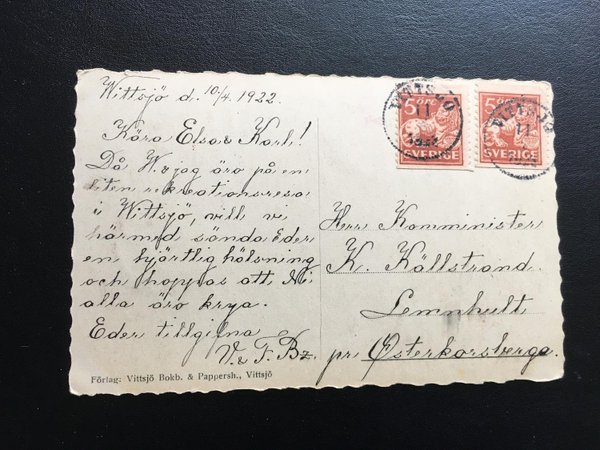 Wittsjö d. 10/4. 1922.
Kära Elsa & Karl!
Då W. o jag äro på en
liten rekreationsresa
i Wittsjö, vill vi
härmed sända Eder
en hjärtlig hälsning
och hoppas att Ni
alla äro krya.
Eder tillgifna
V. & F. Bz.
Förlag: Vittsjö Bokb. & Pappersh., Vittsjö
VITTSJÖ
11
5 ÖRE
SVERIGE
VITTSJÖ
11
5 ÖRE
SVERIGE
Herr Komminister
K. Källstrand.
Lemnhult
pr Österkorsberga.